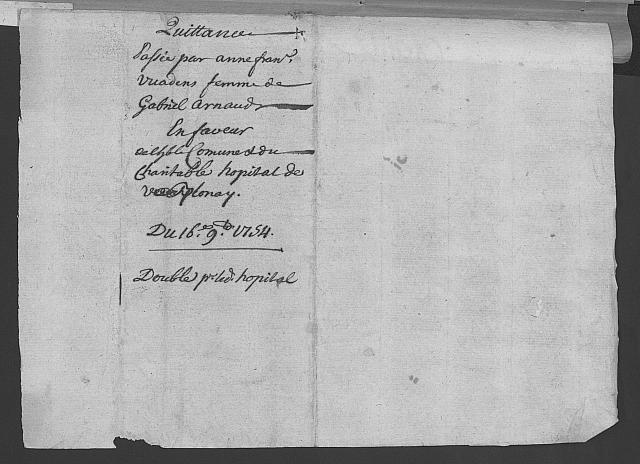 Quittance
Passée par anne fran.
Vuadens femme de
Gabriel Arnaud
En faveur
Comune & du
Charitable hopital de
Du 16.e 9.bre 1754.
Double p.r led. hopital